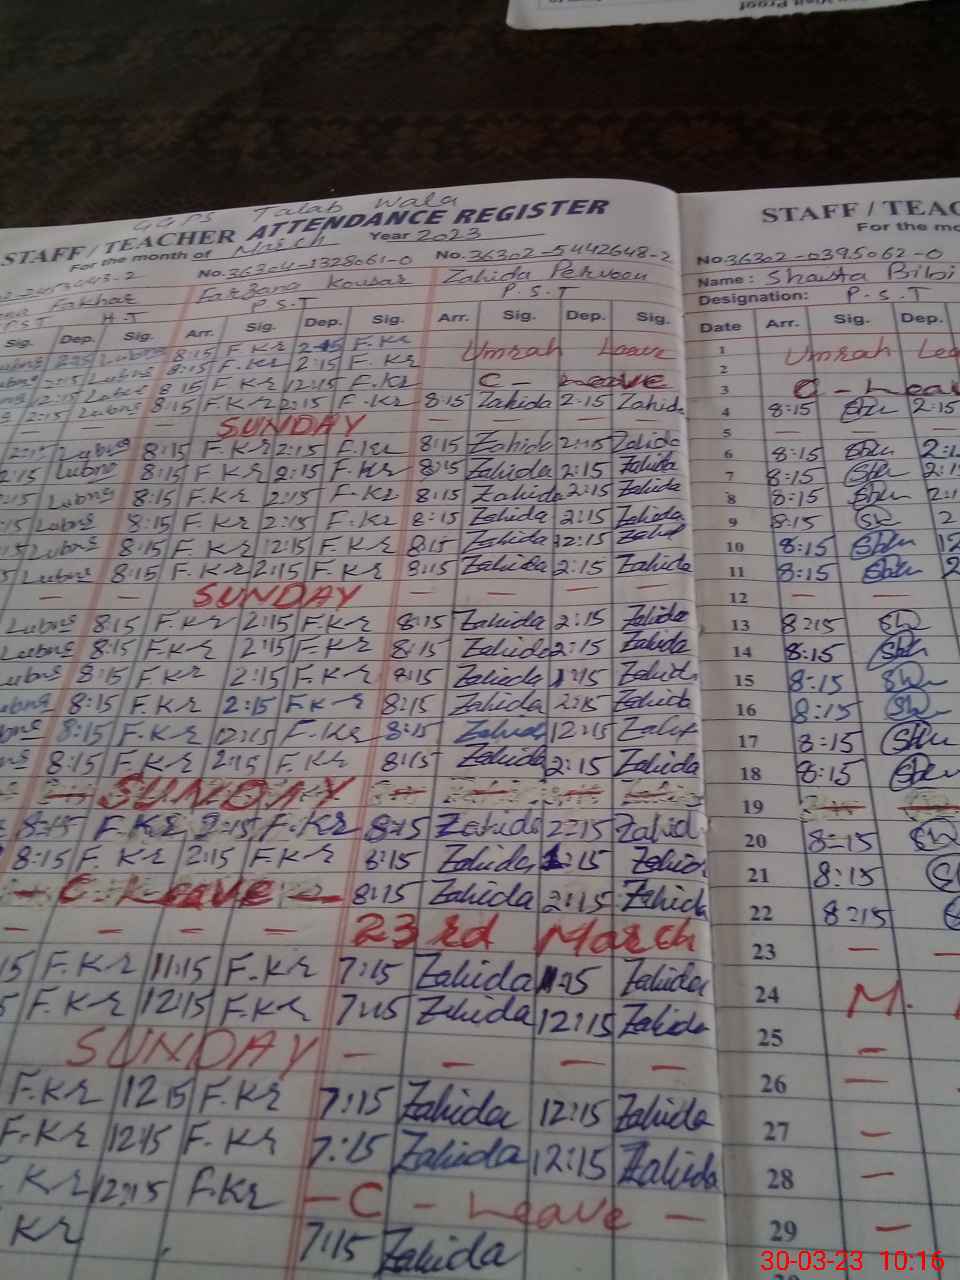 GGPS Talab Wala
STAFF / TEACHER ATTENDANCE REGISTER
For the month of March Year 2023
No. 36304-1328061-0 No. 36302-5442648-2
Fakhar Farzana Kousar Zahida Perveen
P.S.T H.T P.S.T P.S.T
Sig. Dep. Sig. Arr. Sig. Dep. Sig. Arr. Sig. Dep. Sig.
8:15 F.Kr 2:15 F.Kr Umrah Leave
8:15 F.Kr 2:15 F.Kr
12:15 8:15 F.Kr 12:15 F.Kr C - Leave
2:15 Lubna 8:15 F.Kr 2:15 F.Kr 8:15 Zahida 2:15 Zahida
— SUNDAY — — — —
2:15 Lubna 8:15 F.Kr 2:15 F.Kr 8:15 Zahida 2:15 Zahida
2:15 Lubna 8:15 F.Kr 2:15 F.Kr 8:15 Zahida 2:15 Zahida
:15 Lubna 8:15 F.Kr 2:15 F.Kr 8:15 Zahida 2:15 Zahida
:15 Lubna 8:15 F.Kr 2:15 F.Kr 8:15 Zahida 2:15 Zahida
15 Lubna 8:15 F.Kr 12:15 F.Kr 8:15 Zahida 12:15 Zahida
5 Lubna 8:15 F.Kr 2:15 F.Kr 8:15 Zahida 2:15 Zahida
— — SUNDAY — — — —
Lubna 8:15 F.Kr 2:15 F.Kr 8:15 Zahida 2:15 Zahida
Lubna 8:15 F.Kr 2:15 F.Kr 8:15 Zahida 2:15 Zahida
ubna 8:15 F.Kr 2:15 F.Kr 8:15 Zahida 2:15 Zahida
ubna 8:15 F.Kr 2:15 F.Kr 8:15 Zahida 2:15 Zahida
8:15 F.Kr 12:15 F.Kr 8:15 Zahida 12:15 Zahida
8:15 F.Kr 2:15 F.Kr 8:15 Zahida 2:15 Zahida
— SUNDAY — — — —
8:15 F.Kr 2:15 F.Kr 8:15 Zahida 2:15 Zahid
8:15 F.Kr 2:15 F.Kr 8:15 Zahida 2:15 Zahida
— C Leave — 8:15 Zahida 2:15 Zahida
— — — — 23rd March
15 F.Kr 11:15 F.Kr 7:15 Zahida 11:15 Zahida
5 F.Kr 12:15 F.Kr 7:15 Zahida 12:15 Zahida
SUNDAY — — — —
F.Kr 12:15 F.Kr 7:15 Zahida 12:15 Zahida
F.Kr 12:15 F.Kr 7:15 Zahida 12:15 Zahida
Kr 12:15 F.Kr — C - Leave —
Kr 7:15 Zahida
STAFF / TEAC
For the mo
No. 36302-0395062-0
Name: Shaista Bibi
Designation: P.S.T
Date Arr. Sig. Dep.
1 Umrah Lea
2
3 C - Leav
4 8:15 2:15
5 — — —
6 8:15 2:1
7 8:15 2:1
8 8:15 2:1
9 8:15 2
10 8:15 12
11 8:15 2
12 — —
13 8:15
14 8:15
15 8:15
16 8:15
17 8:15
18 8:15
19 — —
20 8:15
21 8:15
22 8:15
23 — —
24 M.
25 —
26 —
27 —
28 —
29 —
30-03-23 10:16